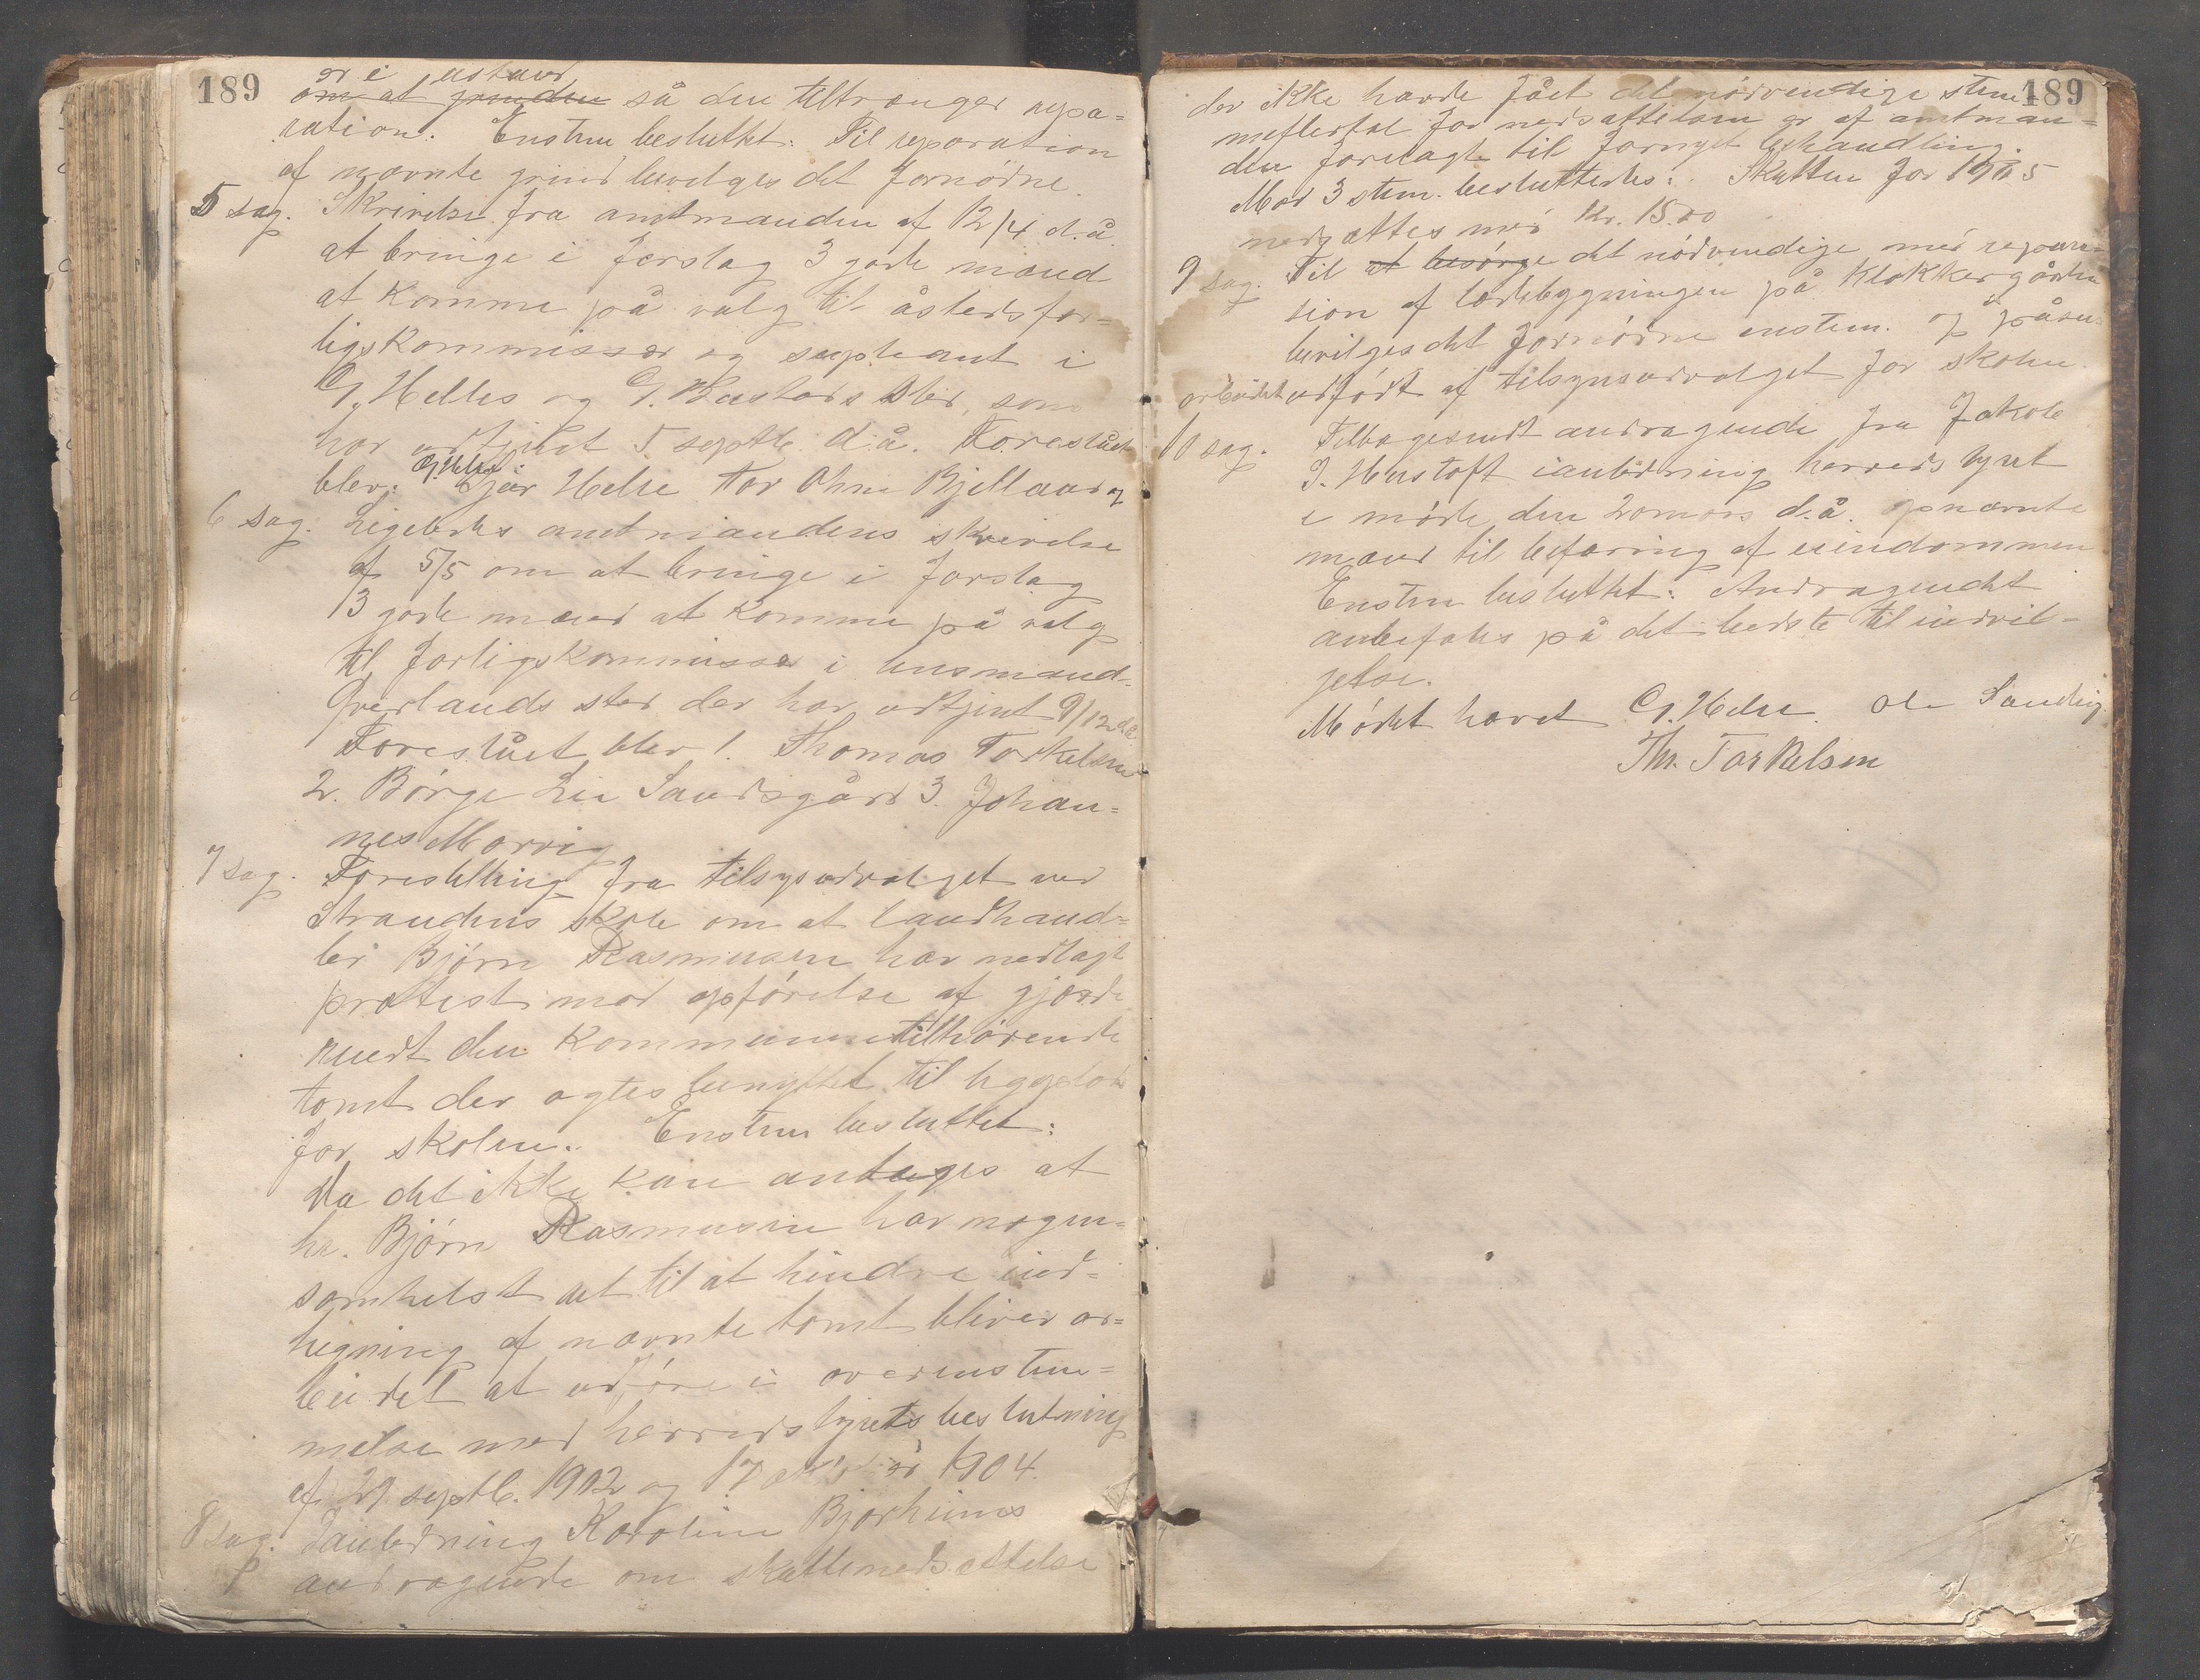 189
er i ustand
om at grinden så den tiltrænger repa=
ration. Enstem besluttet: Til reparation
af nævnte grind bevilges det fornødne.
5 sag. Skrivelse fra amtmanden af 12/4 d.å.
at bringe i forslag 3 gode mænd
at komme på valg til åstedsfor=
ligskommissær og supleant i
G. Helles og G. sted, som
har udtjent 5 septb. d.å. Foreslået
blev: G. Helle Tor Ohm Bjelland og
6 sag. Ligeledes amtmandens skrivelse
af 5/5 om at bringe i forslag
3 gode mænd at komme på valg
til forligskommissær i husmand
Qverlands sted der har udtjent 9/12 d.å.
Foreslået blev 1. Thomas Torkelsen
2. Børge Lie Sandsgård 3. Johan=
nes Morvig
7 sag. Forestilling fra tilsynsudvalget ved
Strandens skole om at landhand=
ler Bjørn Rasmussen har nedlagt
protest mod opførelse af gjærde
rundt den kommunen tilhørende
tomt der agtes benyttet til
for skolen. Enstem besluttet:
Da det ikke kan antages at
hr. Bjørn Rasmussen har nogen=
somhelst ret til at hindre ind=
hegning af nævnte tomt bliver ar=
beidet at udføre i overenstem=
melse med herredstyrets beslutning
af 29 septb. 1902 og 17 1904.
8 sag. Ianledning Karoline Bjorheims
andragende om skattenedsættelse
189
der ikke havde fået det nødvendige stem=
meflertal for nedsættelsen er af amtman=
den forelagt til fornyet behandling.
Mod 3 stem. besluttedes: Skatten for 1905
nedsættes med Kr. 15.00
9 sag. Til at besørge det nødvendige med repara=
sion af ladebygningen på Klokkergården
bevilges det fornødne enstem. og påsees
arbeidet udført af tilsynsudvalget for skolen.
10 sag. Tilbagesendt andragende fra Jakob
J. Hustoft ianledning herredstyret
i møde den 20 mars d.å. opnævnte
mænd til befaring af eiendommen
Enstem besluttet: Andragendet
anbefales på det bedste til indvil=
gelse.
Mødet hævet G. Helle. Ole Sandvig
Thr. Torkelsen